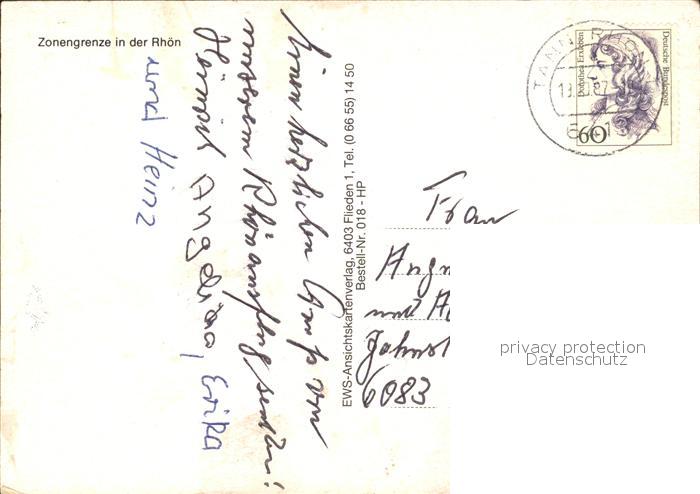 Zonengrenze in der Rhön
Einen herzlichen Gruß von
unserem Rhönausflug senden!
Angelina, Erika
und Heinz
EWS-Ansichtskartenverlag, 6403 Flieden 1, Tel. (0 66 55) 14 50
Bestell-Nr. 018 - HP
TANN
Dorothea Erxleben
Deutsche Bundespost
60
Frau
und
6083
privacy protection
Datenschutz